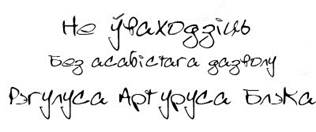 Не ўваходзіць
Без асабістага дазволу
Рэгулуса Артуруса Блэка